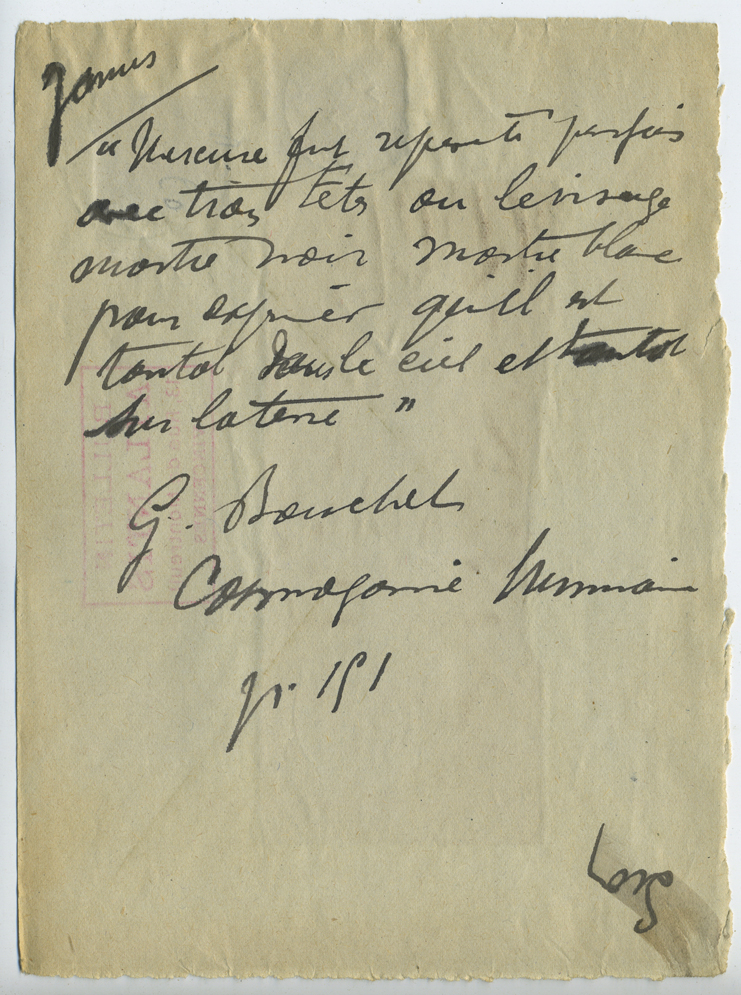 Janus
"Mercure fut represente parfois
avec trois têtes ou le visage
moitie noir moitie blanc
pour exprimer qu'il est
tantot dans le ciel et tantot
sur la terre"
G. Bouchet
Cosmogonie Humaine
p. 191
VINCENNES
ATLANTIS
BULLETIN